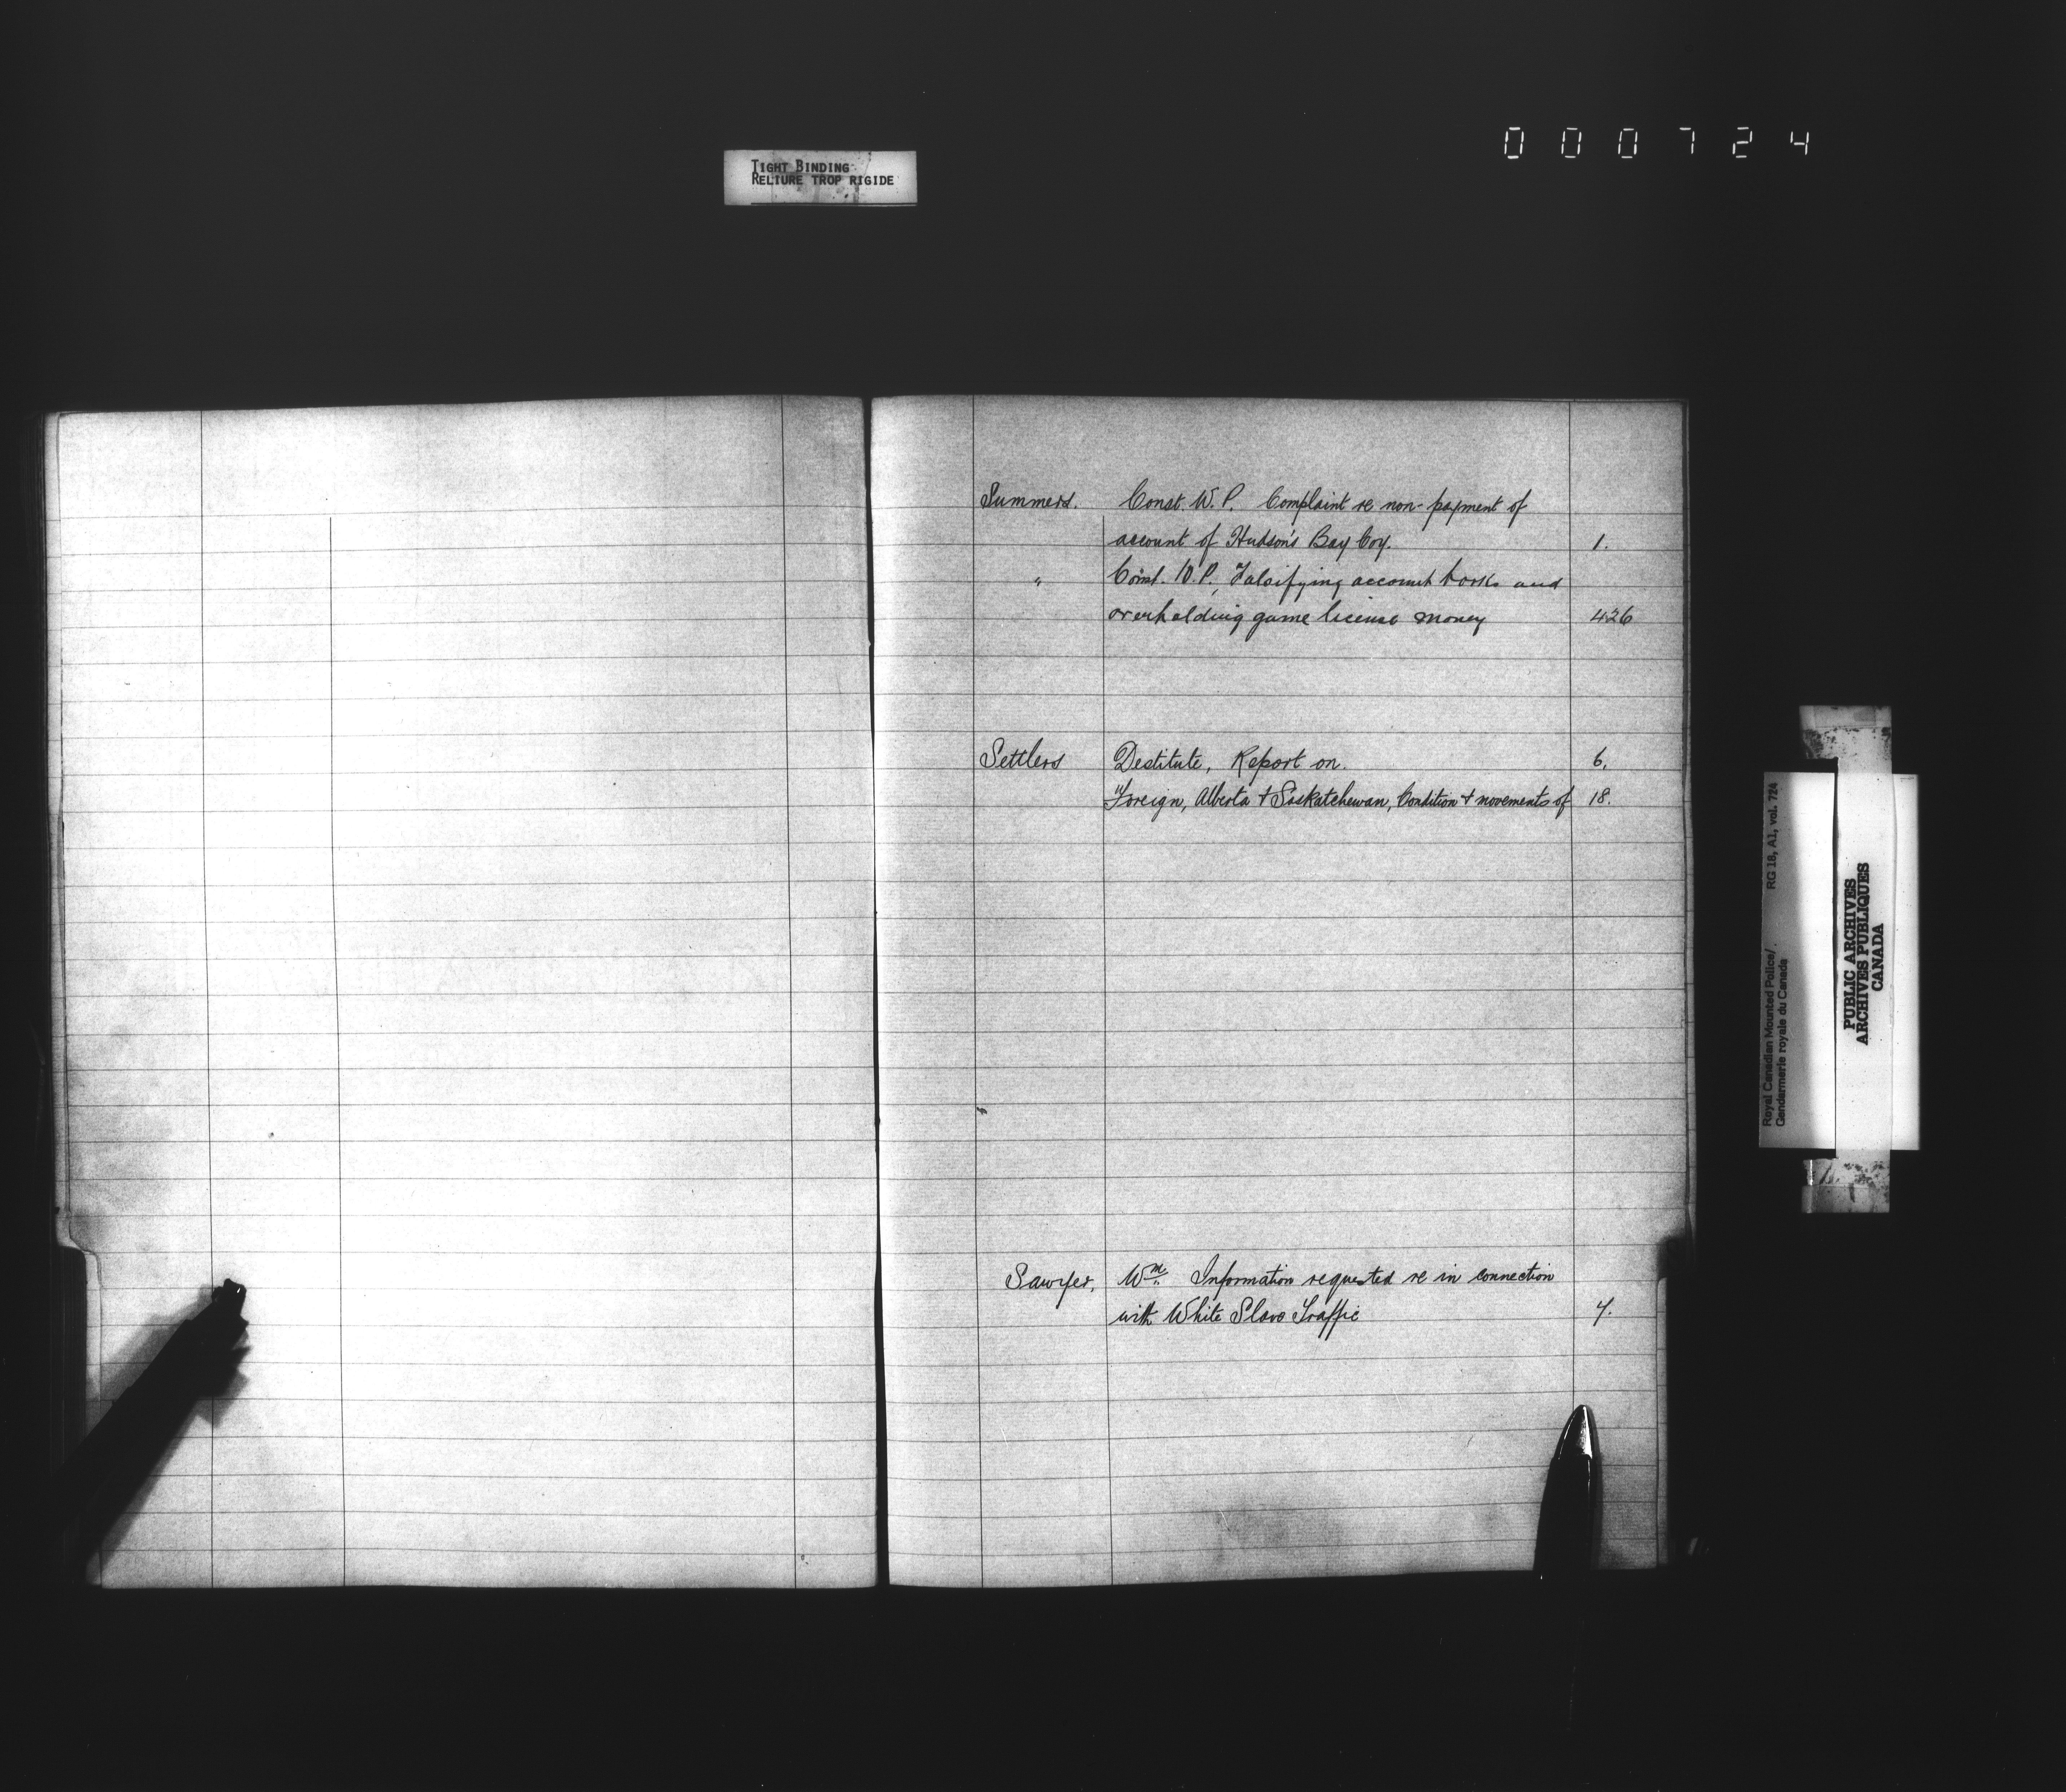 TIGHT BINDING
RELIURE TROP RIGIDE
000724
Summers. Const. W. P. Complaint re non-payment of
account of Hudson's Bay Coy. 1.
" Const. W. P. Falsifying account books and
overholding game license money 426
Settlers Destitute, Report on. 6.
Foreign, Alberta + Saskatchewan, Condition + movements of 18.
Sawyer, Wm. Information requested re in connection
with White Slave Traffic 7.
Royal Canadian Mounted Police/ RG 18, A1, vol. 724
Gendarmerie royale du Canada
PUBLIC ARCHIVES
ARCHIVES PUBLIQUES
CANADA